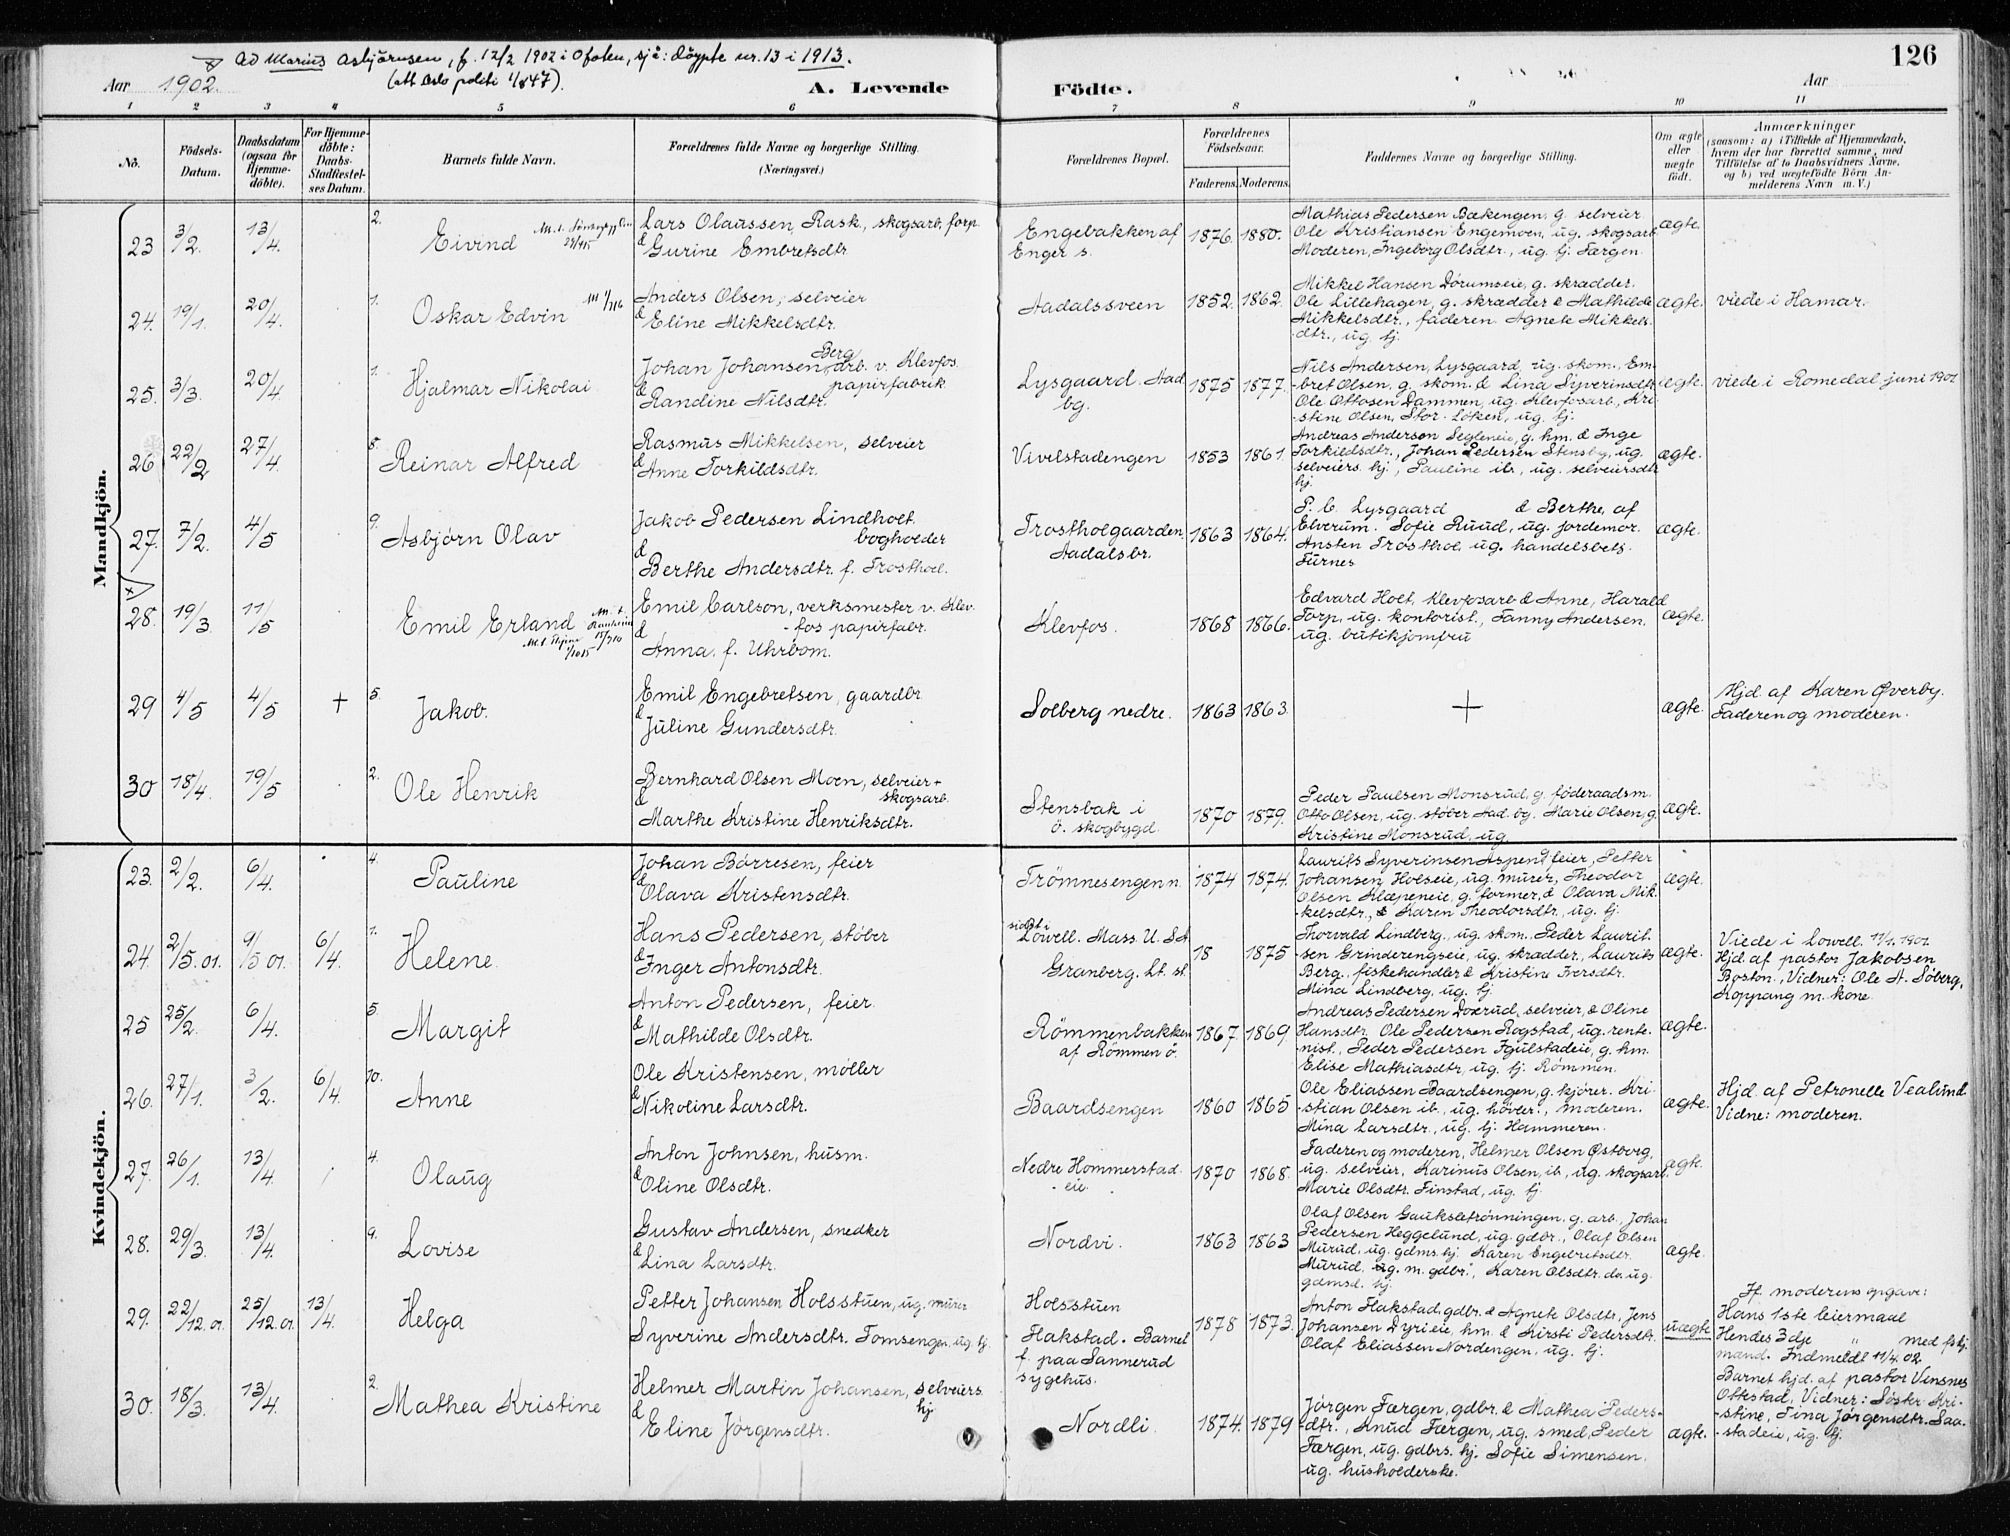 126
Ad Marius Asbjörnsen, f. 12/2 1902 i Ofoten, sjå: döypte nr. 13 i 1913.
(att Oslo politi 1/8 47).
Aar 1902. A. Levende Födte. Aar
1 2 3 4 5 6 7 8 9 10 11
No. Födsels-Datum. Daabsdatum (ogsaa for Hjemmedöbte). For Hjemmedöbte: Daabs-Stadfæstelses Datum. Barnets fulde Navn. Forældrenes fulde Navne og borgerlige Stilling. (Næringsvei.) Forældrenes Bopæl. Forældrenes Födselsaar. Faderens. Moderens. Faddernes Navne og borgerlige Stilling. Om ægte eller uægte födt. Anmærkninger (saasom: a) i Tilfælde af Hjemmedaab, hvem der har forrettet samme, med Tilföielse af to Daabsvidners Navne, og b) ved uægtefödte Börn Anmelderens Navn m. V.)
Mandkjön.
23 3/2. 13/4. 2. Eivind Lars Olaussen Rask, skogsarb. forp. & Gurine Embretsdtr. Engebakken af Enger s. 1876. 1880. Mathias Pedersen Bækengen, g. selveier Ole Kristiansen Engemoen, ug. skogsarb. Moderen, Ingeborg Olsdtr., ug. hj. Færgen. ægte.
24. 19/1. 20/4. 1. Oskar Edvin Anders Olsen, selveier & Eline Mikkelsdtr. Aadalssveen 1852. 1862. Mikkel Hansen Dörumseie, g. skrædder. Ole Lillehagen, g. skrædder & Mathilde Mikkelsdtr., faderen. Agnete Mikkelsdtr., ug. hj. ægte. viede i Hamar.
25. 3/3. 20/4. 1. Hjalmar Nikolai Johan Johansen Berg, arb. v. Klevfos papirfabrik & Randine Nilsdtr. Lysgaard. Aad bg. 1875 1877. Nils Andersen, Lysgaard, ug. skom., Embret Olsen, g. skom. & Lina Syverinsdtr. Ole Ottosen Dammen, ug. Klevfosarb., Kristine Olsen, Stor-Löken, ug. hj. ægte. viede i Romedal juni 1901
26 22/2 27/4. 5. Reinar Alfred Rasmus Mikkelsen, selveier & Anne Torkildsdtr. Vivelstadengen 1853 1861. Andreas Anderson Segleneie, g. hm. & Inge Torkildsdtr., Johan Pedersen Stensby, ug. selveiers. hj., Pauline ib., ug. selveiersdtr hj. ægte.
27. 7/2. 4/5 9. Asbjörn Olav Jakob Pedersen Lindholt. bogholder & Berthe Andersdtr. f. Trosthoel. Trostholgaarden, Aadalsbr. 1863 1864. P. C. Lysgaard & Berthe, af Elverum. Sofie Ruud, ug. jordemor. Ansten Trosthol, ug. handelsbets. Furnes ægte.
28. 19/3. 11/5 Emil Erland Emil Carlson, verksmester v. Klevfos papirfabr. & Anna, f. Uhrbom. Klevfos. 1868 1866. Edvard Holt, Klevfosarb & Anne, Harald Torp, ug. kontorist., Fanny Andersen. ug. butikjomfru ægte.
29 4/5 4/5 + 5. Jakob. Emil Engebretsen, gaardbr & Juline Gundersdtr. Solberg nedre. 1863 1863. + ægte. Hjd. af Karen Överby. Faderen og moderen.
30 18/4. 19/5 2. Ole Henrik Bernhard Olsen Moen, selveier + skogsarb. & Marthe Kristine Henriksdtr. Stensbak i ö. skogbygd. 1870 1879. Peder Paulsen Monsrud, g. föderaadsm. Otto Olsen, ug. stöber Aad. bg. Marie Olsen, g. Kristine Monsrud, ug. ægte.
Kvindekjön.
23. 2/2. 6/4. 4. Pauline Johan Börresen, feier & Olava Kristensdtr. Trömnesengen n. 1874 1874. Laurits Syverinsen Aspen, feier, Petter Johansen Holseie, ug. murer, Theodor Olsen Klæpeneie, g. former, & Olava Mikkelsdtr., & Karen Theodorsdtr., ug. hj. ægte.
24. 2/5. 01. 9/5 01. 6/4. 1. Helene. Hans Pedersen, stöber & Inger Antonsdtr. sidst i Lowell. Mass. U. S A. Granberg, Lt. st. 18 1875 Thorvald Lindberg., ug. skom. Peder Lauritsen Grinderengseie, ug. skrædder., Laurits Berg., fiskehandler & Kristine Iversdtr. Mina Lindberg, ug. hj. ægte. Viede i Lowell. 11/1. 1901. Hjd. af pastor Jakobsen Boston., Vidner: Ole A. Söberg, Koppang m. kone.
25 25/2. 6/4. 5. Margit Anton Pedersen, feier & Mathilde Olsdtr. Römmenbakken af Römmen ö. 1867. 1869. Andreas Pedersen Doxrud, selveier, & Oline Hansdtr. Ole Pedersen Rogstad, ug. rentenist., Peder Pedersen Fgulstadeie, g. hm. Elise Mathiasdtr, ug. hj. Römmen. ægte.
26. 27/1. 3/2. 6/4. 10. Anne Ole Kristensen, möller & Nikoline Larsdtr. Baardsengen 1860 1865 Ole Eliassen Baardsengen, g. kjörer. Kristian Olsen ib., ug. hövler., moderen. Mina Larsdtr., ug. hj. Hammeren. ægte. Hjd. af Petronelle Vealund. Vidne: moderen.
27. 26/1. 13/4. 4. Olaug Anton Johnsen, husm. & Oline Olsdtr. Nedre Hommerstadeie. 1870 1868. Faderen og moderen, Helmer Olsen Östberg, ug. selveier, Karinus Olsen, ib., ug. skogsarb. Marie Olsdtr. Finstad, ug. hj. ægte.
28. 29/3. 13/4. 9. Lovise Gustav Andersen, snedker & Lina Larsdtr. Nordvi. 1863 1863 Olaf Olsen Gaukseterönningen, g. arb., Johan Pedersen Heggelund, ug. gdbr., Olaf Olsen Murud, ug. gdms. hj. Karen Engebretsdtr. Murud, ug. m. gdbr., Karen Olsdtr. do. ug. gdmsd. hj. ægte.
29. 22/12. 01. 25/12. 01. 13/4. Helga Petter Johansen Holsstuen, ug. murer Syverine Andersdtr. Tomsengen, ug. hj. Holsstuen Flakstad. Barnet f. paa Sannerud sygehus. 1878 1873. Anton Flakstad, gdbr. & Agnete Olsdtr, Jens Johansen Dyrieie, hm. & Kirsti Pedersdtr. Olaf Eliassen Nordengen, ug. hj. uægte Ff. moderens opgave: Hans 1ste leiermaal Hendes 3dje " med fshj. mand. Indmeldt 11/4. 02. Barnet hjd. af pastor Vensnes Ottestad, Vidner: Söster Kristine, Tina Jörgensdtr. Saastadeie, ug. hj.
30. 18/3. 13/4. 2. Mathea Kristine Helmer Martin Johansen, selveiers hj & Eline Jörgensdtr. Nordli. 1874. 1879 Jörgen Færgen, gdbr. & Mathea Pedersdtr., Knud Færgen, ug. smed, Peder Færgen, ug. gdbrs. hj. Sofie Simensen. ug. husholderske. ægte.